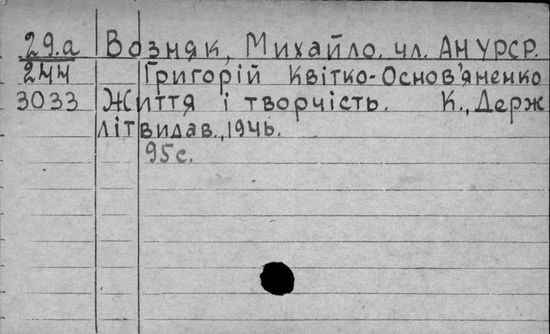 29.а Возняк, Михайло. чл. АН УРСР.
244 Григорій Квітко-Основ'яненко
3033 Життя і творчість. К., Держ
літвидав., 1946.
95с.